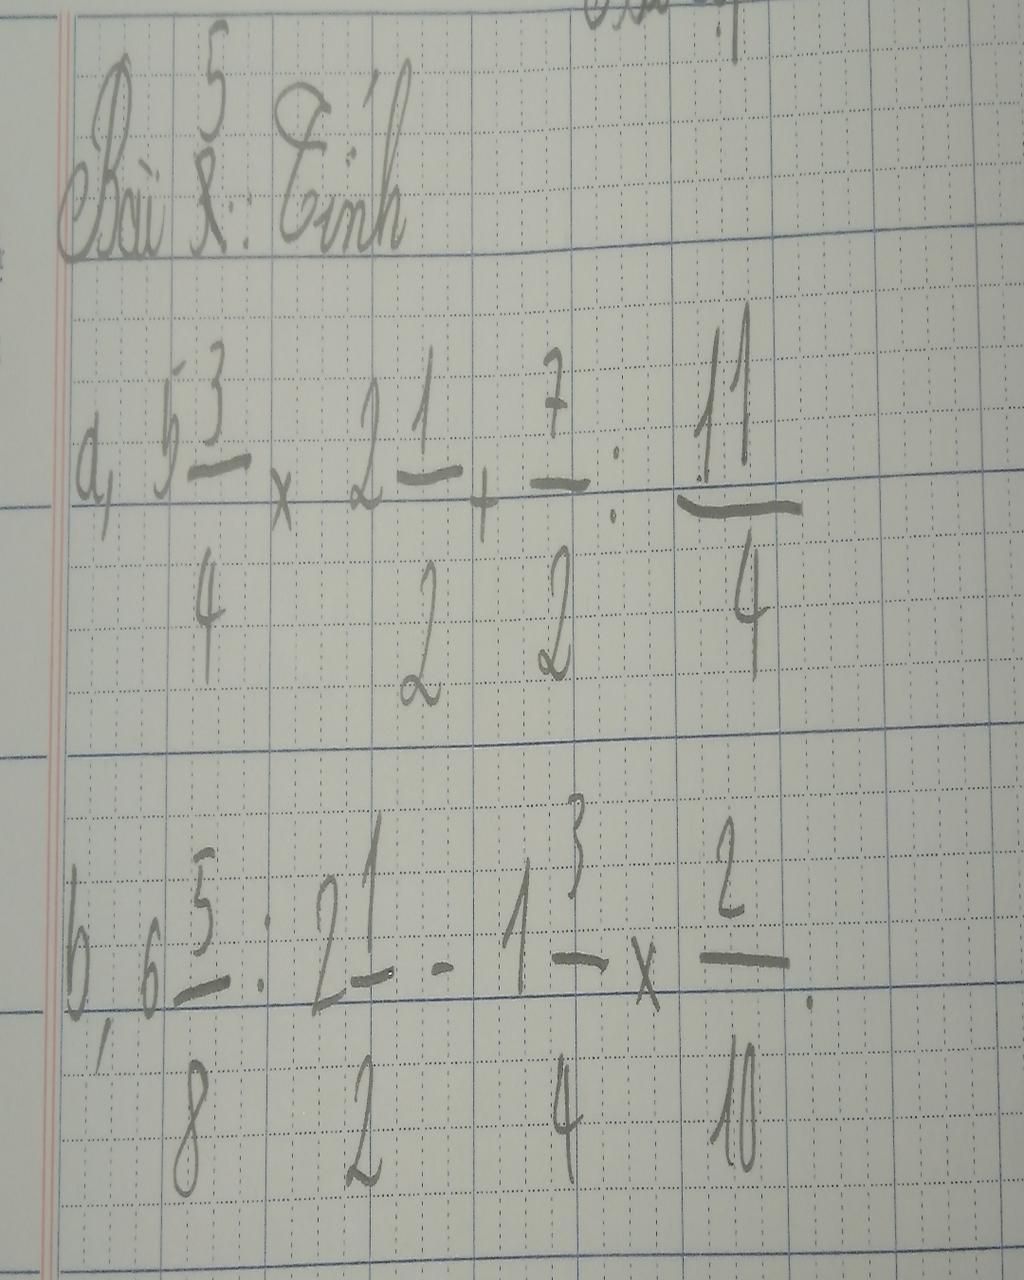 Bài 5: Tính
a, 5 3/4 x 2 1/2 + 7/2 : 11/4
b, 6 5/8 : 2 1/2 - 1 3/4 x 2/10.